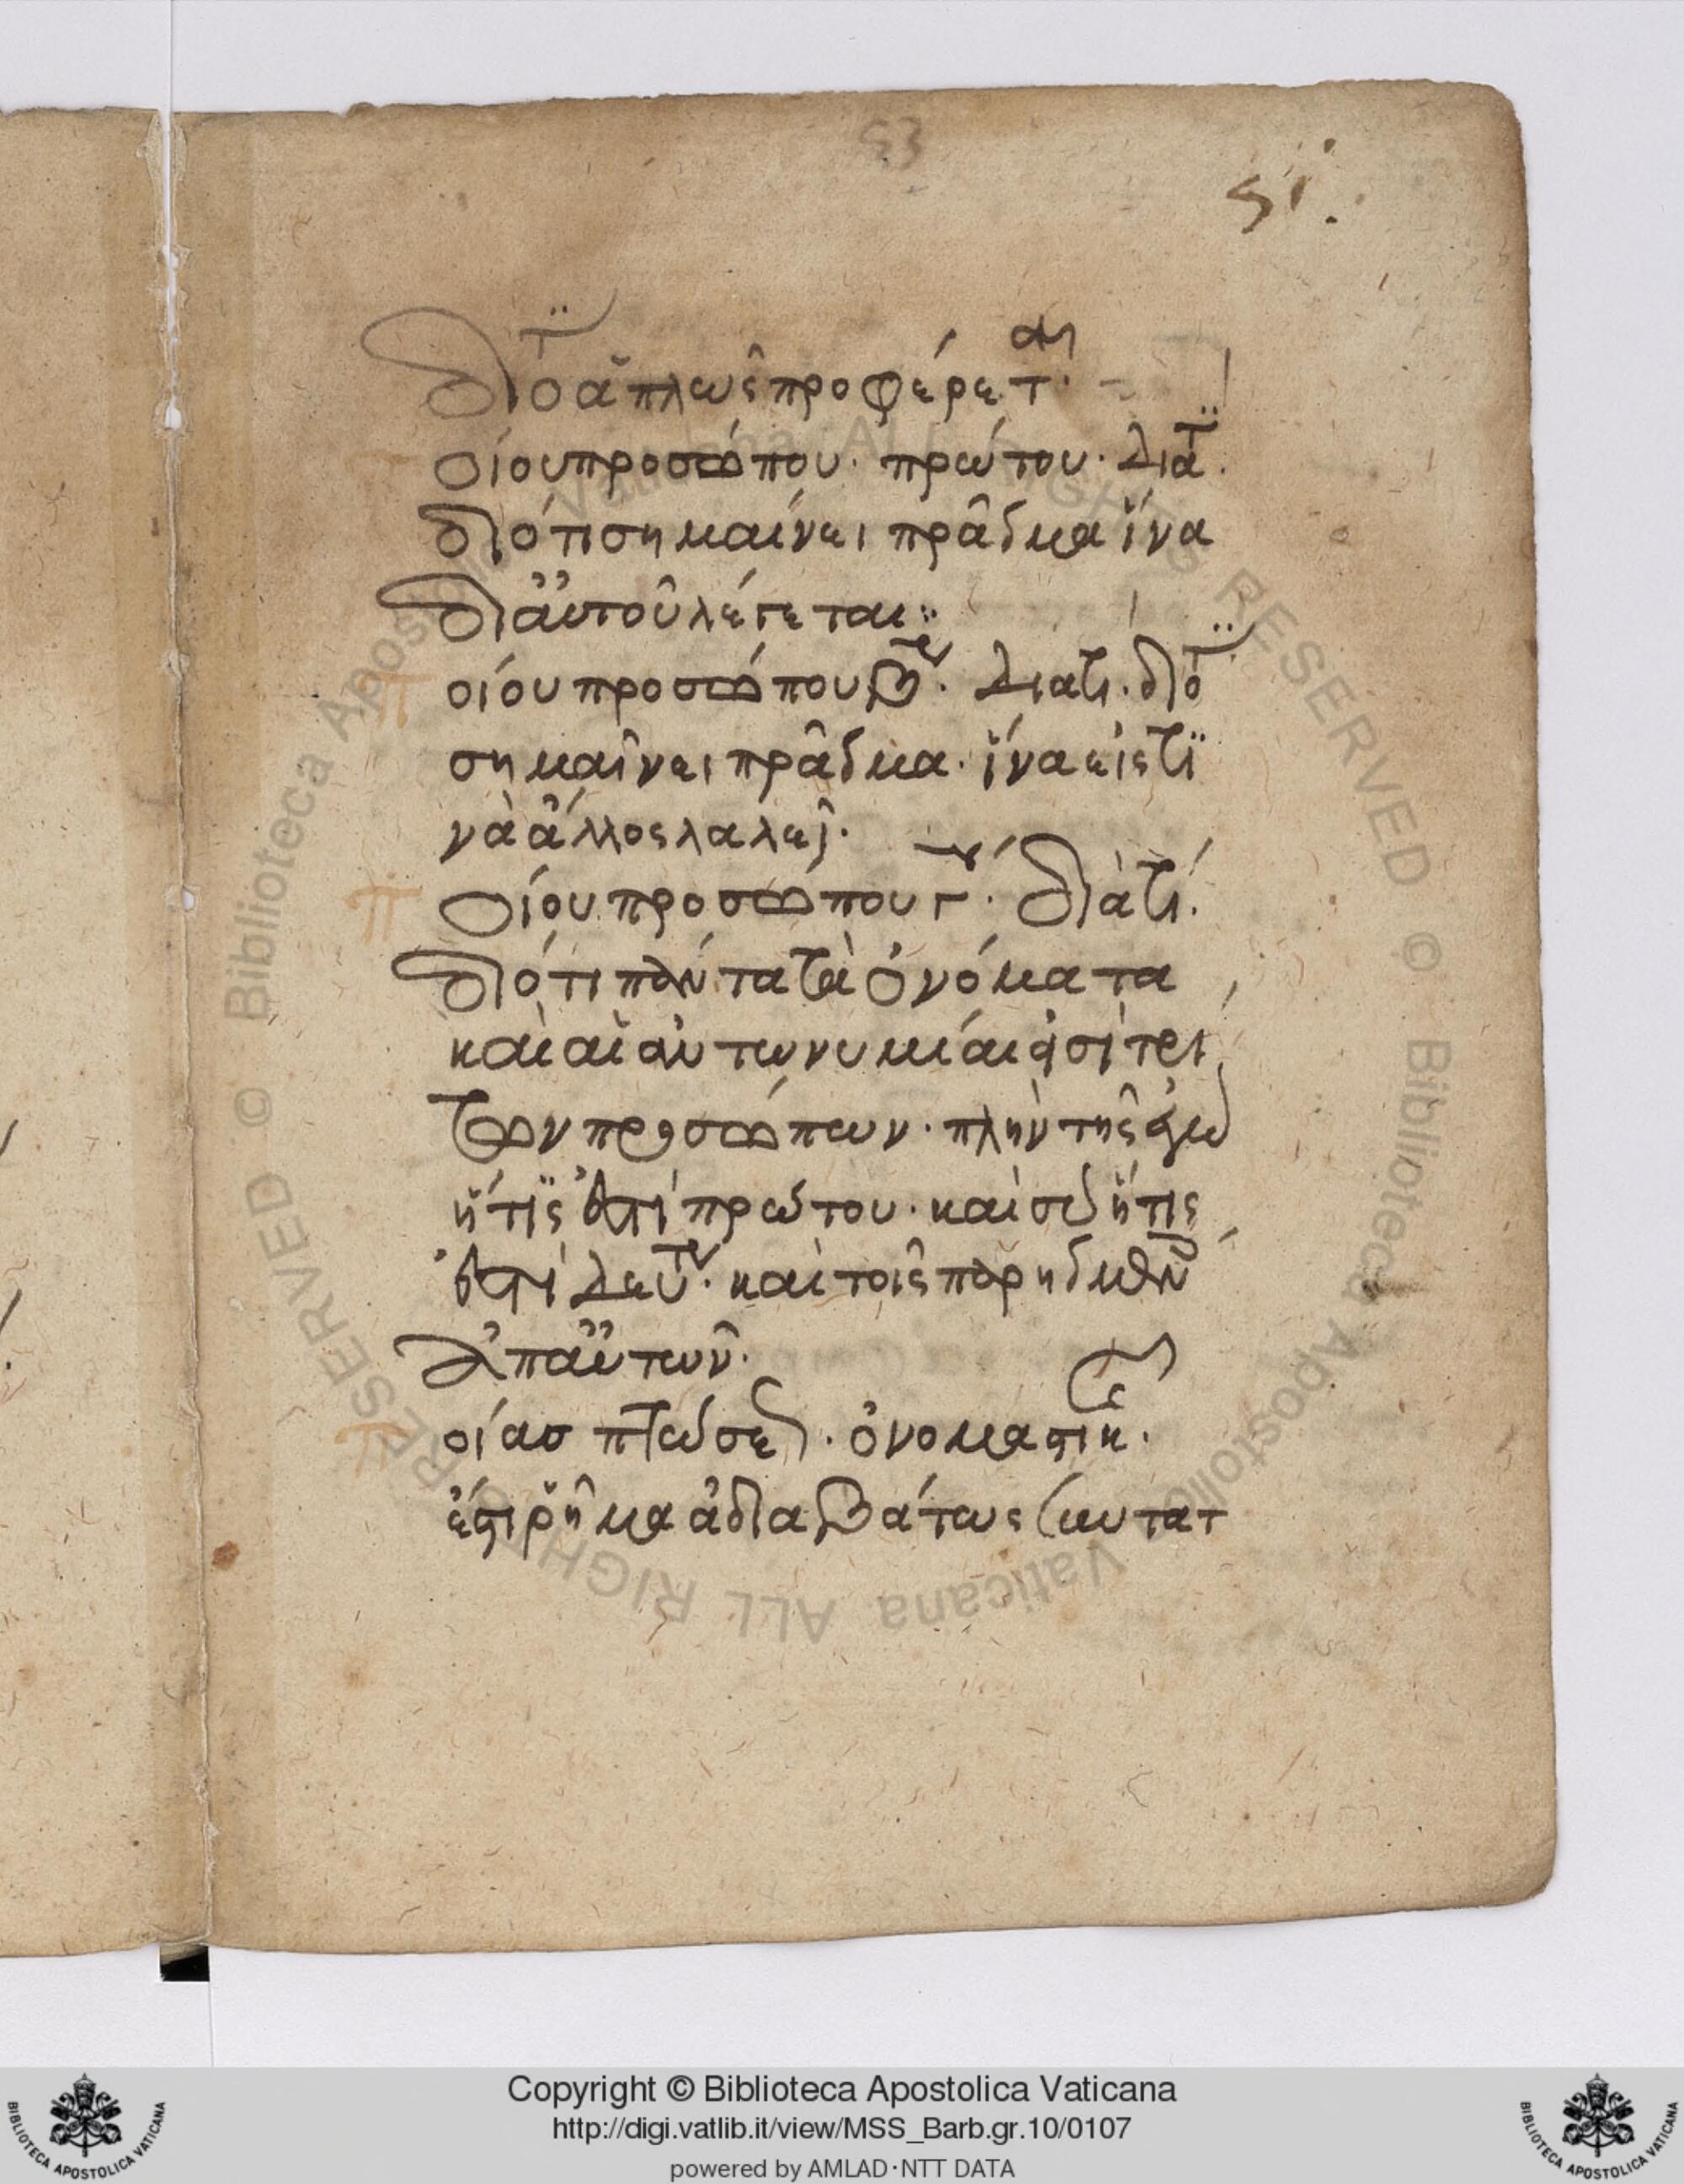 53
ςι΄.
διότι ἁπλῶς προφέρεται·
οἵου προσώπου· πρώτου· διατί.
διότι σημαίνει πρᾶγμα ἵνα
δι ἀυτοῦ λέγεται:
π οἵου προσώπου βου· διατι. διότι
σημαίνει πρᾶγμα· ἵνα εἰς τϊ
νὰ ἄλλος λαλεῖ·
π οἵου προσώπου γου· διὰτί.
διότι πάντα τὰ ὀνόματα
καὶ αἱ ἀντωνυμίαι εἰσὶ τρί
των προσώπων· πλὴν τῆς ἐγὼ
ἥτϊς ἐστὶ πρώτου· καὶ σὺ ἥτις
ἐστὶ δευτου· καὶ τοῖς παρηγμένων
ἀπ ἀυτῶν·
π οἵασ πτώσεως· ὀνομαστικῆς·
ἔστι ῥῆμα ἀδιαβάτως συντατ
Copyright © Biblioteca Apostolica Vaticana
http://digi.vatlib.it/view/MSS_Barb.gr.10/0107
powered by AMLAD·NTT DATA
BIBLIOTECA APOSTOLICA VATICANA
BIBLIOTECA APOSTOLICA VATICANA
© Biblioteca Apostolica Vaticana ALL RIGHTS RESERVED © Biblioteca Apostolica Vaticana ALL RIGHTS RESERVED